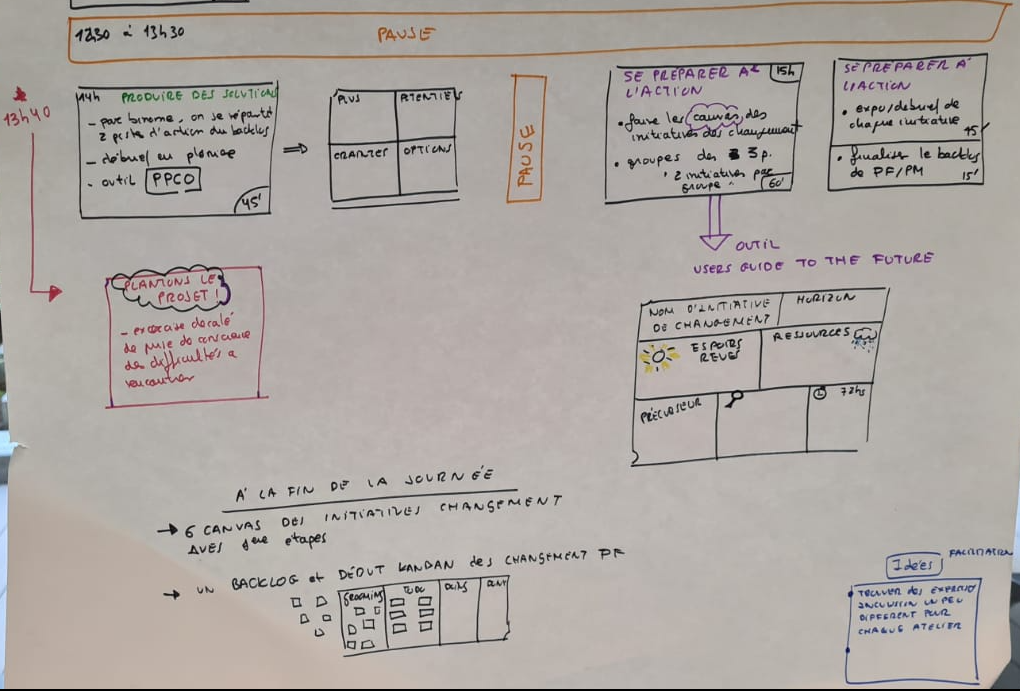 12h30 à 13h30
PAUSE
13h40
14h PRODUIRE DES SOLUTIONS
- par binome, on se répartit
2 pistes d'action du backlog
- débrief en plénière
- outil PPCO
45'
PLUS
POTENTIELS
CRAINTES
OPTIONS
PAUSE
SE PRÉPARER À
L'ACTION
15h
• faire les canvas des
initiatives des changement
• groupes des 3 p.
2 initiatives par
groupe
60'
SE PREPARER À
L'ACTION
• expo/debrief de
chaque initiative
45'
• finaliser le backlog
de PF/PM
15'
OUTIL
USERS GUIDE TO THE FUTURE
NOM D'INITIATIVE
DE CHANGEMENT
HORIZON
ESPOIRS
REVES
RESSOURCES
PRÉCURSEUR
72hs
PLANTONS LE
PROJET !
- exercice décalé
de prise de conscience
des difficultés a
rencontrer
A' LA FIN DE LA JOURNÉE
→ 6 CANVAS DES INITIATIVES CHANGEMENT
AVES 1ère etapes
→ UN BACKLOG et DÉBUT KANBAN des CHANGEMENT PF
GROOMING
TODO
DOING
DONT
Idées
FACILITATION
• TROUVER des EXPERTS
INCLUSION UN PEU
DIFFERENT POUR
CHAQUE ATELIER